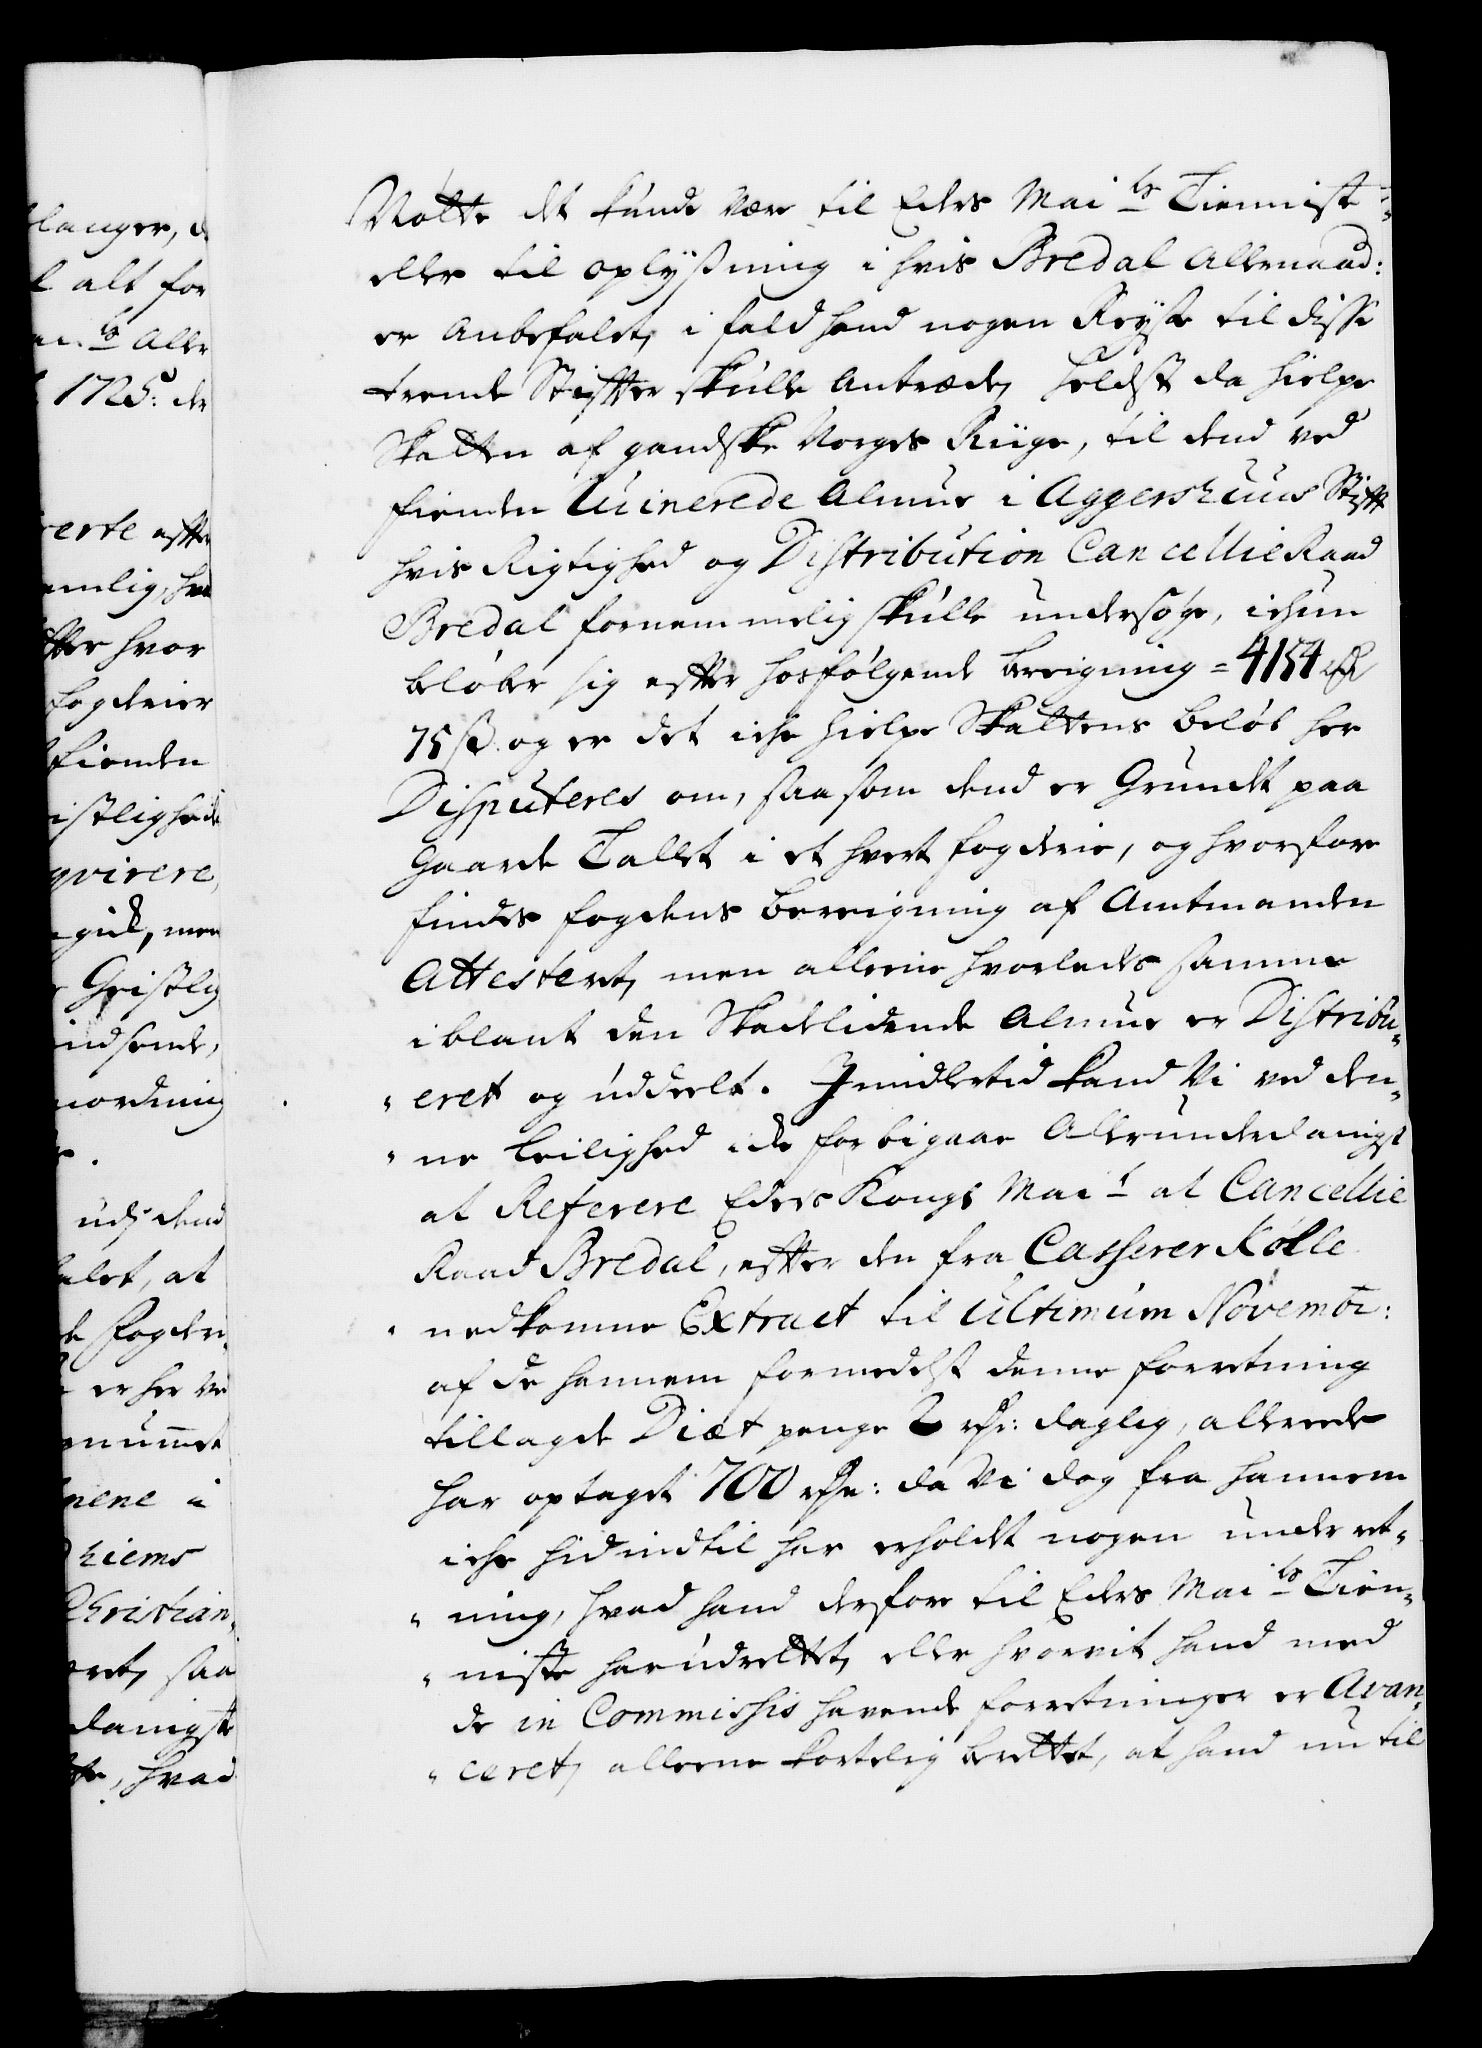 langer, d
l alt for
ai.ts Alle
1725: der
erte effter
emlig, hva
ffter hvor
fogderier
fienden
istlighede
qvirere,
gich, men
Geistlig
indsende,
nordning
udj dend
alet, at
de Fogderi„
er her ve
enummet
nene i
hiems
Christian„
eret, saa
danigste
tte, hvad
Møtte det kunde være til Eders Mai.ts Tienniste
eller til oplysning i hvis Bredal Allernaad:
er Anbefalet, i fald hand nogen Reyse til disse
trende Stiffter skulle Antræde, heldst da hielpe
Skatten af gandske Norges Riige, til dend ved
fienden Ruinerede Almue i Aggershuus Stifft
hvis Rigtighed og Distribution CancellieRaad
Bredal fornemmelig skulle undersøge, ichun
beløber sig effter hosfølgende beregning = 4154 rdr
75 s. og er det iche hielpe Skattens beløb her
Disputeres om, saasom dend er Grundet paa
Gaarde Tallet i et hvert fogderie, og hvorfore
findes fogdens beregning af Amtmanden
Attesteret, men alleene hvorledes samme
iblant den Skadelidende Almue er Distribu„
„ eret og uddeelt. Imidlertid kand Vi ved den„
„ ne leilighed iche forbigaae Allerunderdanigst
at Referere Eders Kongl Mai.t at Cancellie
Raad Bredal, effter den fra Casserer Kølle
„ nedkomne Extract til Ultimum Novembr:
af de hannem formedelst denne forretning
tillagde Diæt penge 2 rdr: daglig, allereede
har optaget 700 rdr: da Vi dog fra hannem
iche hidindtil har erholdet nogen underret„
„ ning, hvad hand derfore til Eders Mai.ts Tien„
„ niste har udrettet, eller hvorvit hand med
de in Commissis havende forretninger er Avan„
„ ceret, alleene kortelig berettet, at hand nu til